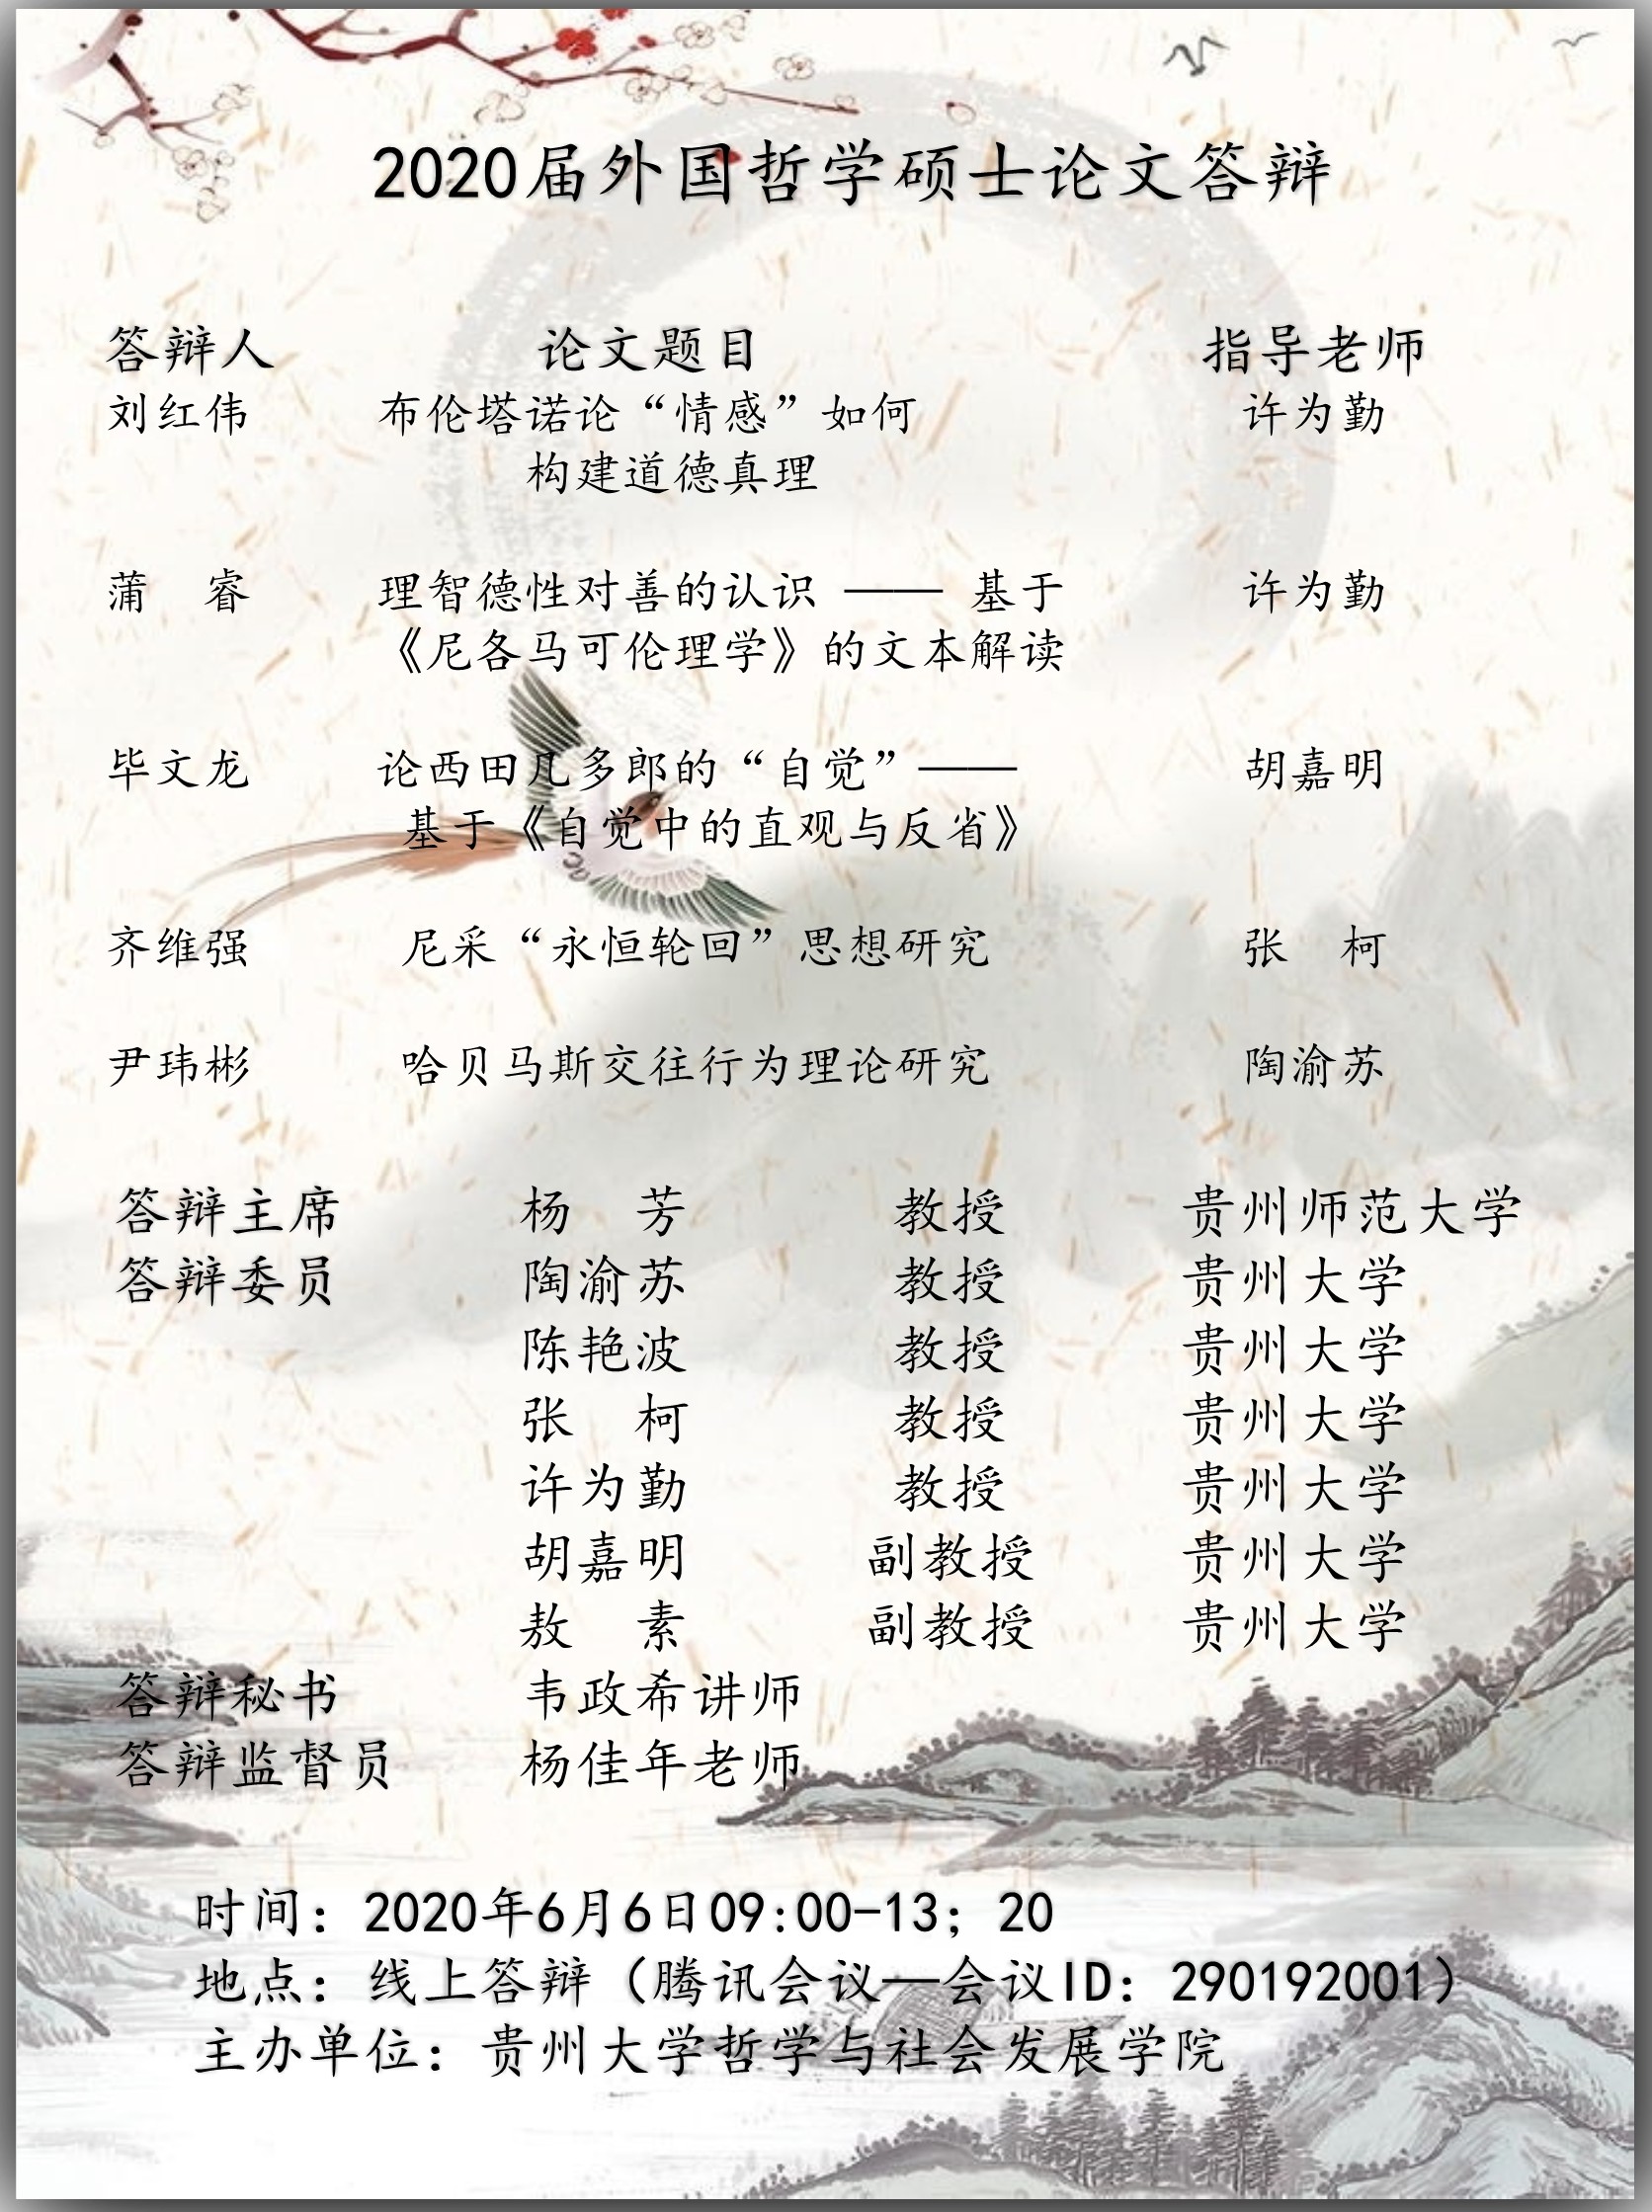 2020届外国哲学硕士论文答辩
答辩人 论文题目 指导老师
刘红伟 布伦塔诺论“情感”如何 许为勤
构建道德真理
蒲 睿 理智德性对善的认识 —— 基于 许为勤
《尼各马可伦理学》的文本解读
毕文龙 论西田几多郎的“自觉”—— 胡嘉明
基于《自觉中的直观与反省》
齐维强 尼采“永恒轮回”思想研究 张 柯
尹玮彬 哈贝马斯交往行为理论研究 陶渝苏
答辩主席 杨 芳 教授 贵州师范大学
答辩委员 陶渝苏 教授 贵州大学
陈艳波 教授 贵州大学
张 柯 教授 贵州大学
许为勤 教授 贵州大学
胡嘉明 副教授 贵州大学
敖 素 副教授 贵州大学
答辩秘书 韦政希讲师
答辩监督员 杨佳年老师
时间：2020年6月6日09:00-13；20
地点：线上答辩（腾讯会议—会议ID：290192001）
主办单位：贵州大学哲学与社会发展学院